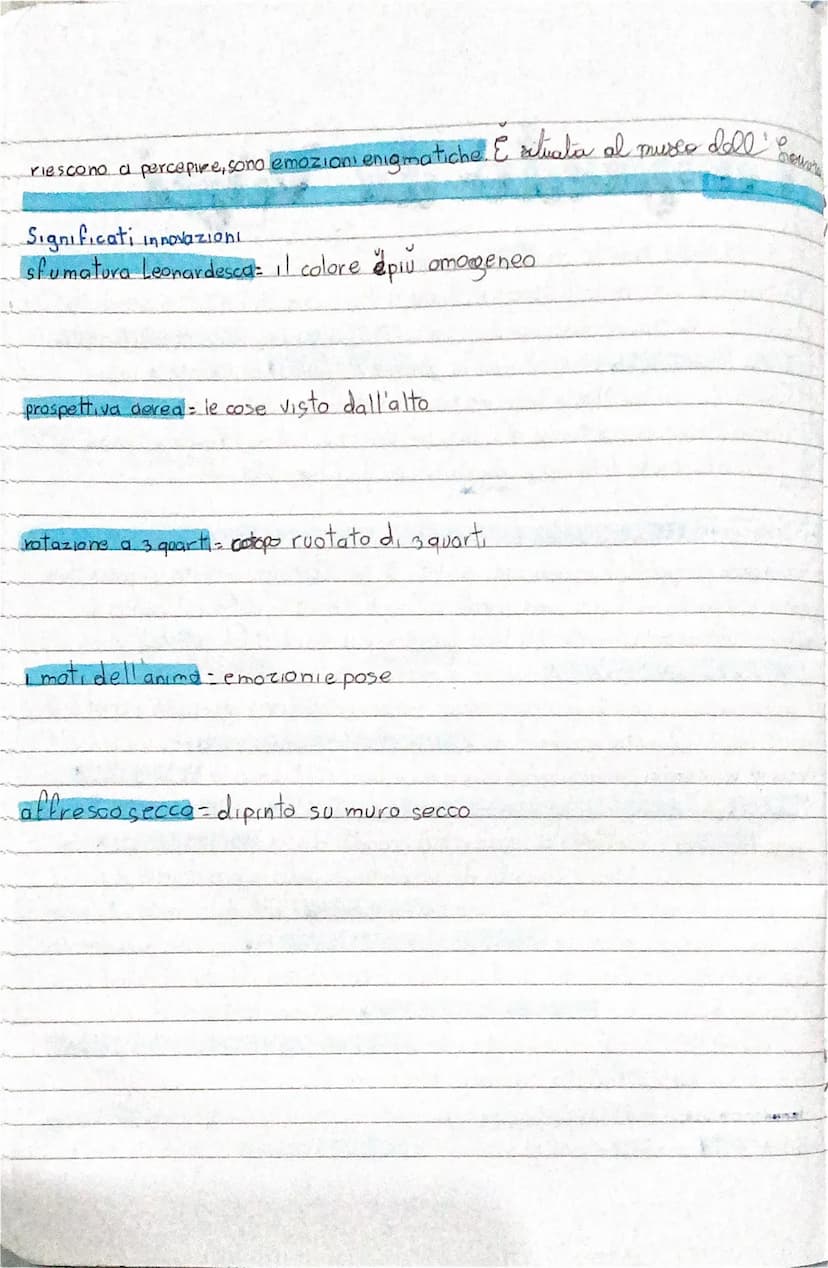 riescono a percepire, sono emozioni enigmatiche. È situata al museo dell'
Significati innovazioni
sfumatura Leonardesca = il colore è più omogeneo
prospettiva aerea = le cose visto dall'alto
rotazione a 3 quarti = corpo ruotato di 3 quarti
i moti dell'anima = emozioni e pose
affresco secco = dipinto su muro secco